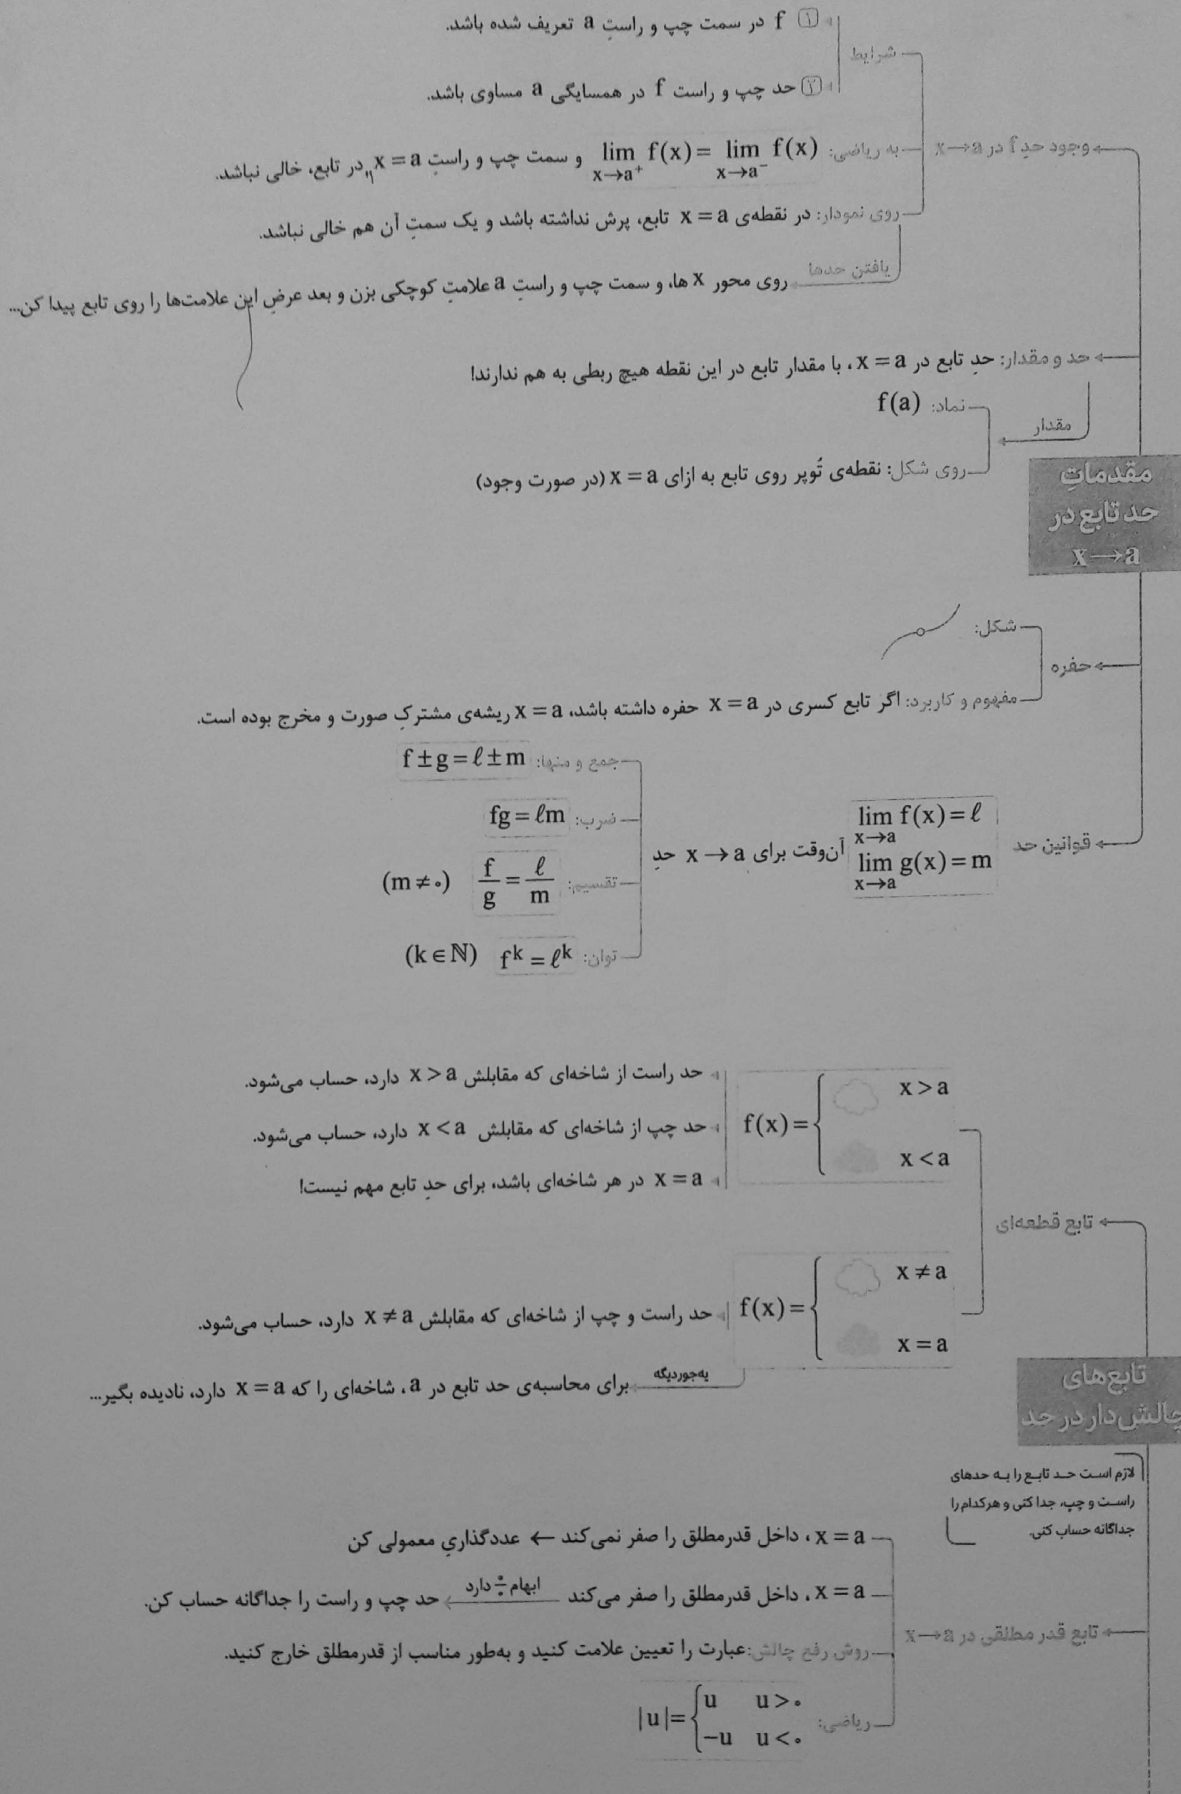 ① f در سمت چپ و راستِ a تعریف شده باشد.
شرایط
② حد چپ و راست f در همسایگی a مساوی باشد.
وجود حدِ f در x→a
به ریاضی: lim f(x) = lim f(x) و سمت چپ و راستِ x = a در تابع، خالی نباشد.
x→a⁺ x→a⁻
روی نمودار: در نقطه‌ی x = a تابع، پرش نداشته باشد و یک سمتِ آن هم خالی نباشد.
یافتن حدها
روی محور x ها، و سمت چپ و راستِ a علامتِ کوچکی بزن و بعد عرضِ این علامت‌ها را روی تابع پیدا کن...
حد و مقدار: حدِ تابع در x = a، با مقدار تابع در این نقطه هیچ ربطی به هم ندارند!
نماد: f(a)
مقدار
روی شکل: نقطه‌ی تُوپر روی تابع به ازای x = a (در صورت وجود)
مقدماتِ
حد تابع در
x→a
شکل:
حفره
مفهوم و کاربرد: اگر تابع کسری در x = a حفره داشته باشد، x = a ریشه‌ی مشترکِ صورت و مخرج بوده است.
قوانین حد
lim f(x) = ℓ
x→a
lim g(x) = m
x→a
آن‌وقت برای x → a حدِ
جمع و منها: f ± g = ℓ ± m
ضرب: fg = ℓm
تقسیم: f/g = ℓ/m (m ≠ ۰)
توان: fᵏ = ℓᵏ (k ∈ ℕ)
تابع قطعه‌ای
f(x) = { x > a
x < a
حد راست از شاخه‌ای که مقابلش x > a دارد، حساب می‌شود.
حد چپ از شاخه‌ای که مقابلش x < a دارد، حساب می‌شود.
x = a در هر شاخه‌ای باشد، برای حدِ تابع مهم نیست!
f(x) = { x ≠ a
x = a
حد راست و چپ از شاخه‌ای که مقابلش x ≠ a دارد، حساب می‌شود.
یه‌جوردیگه
برای محاسبه‌ی حد تابع در a، شاخه‌ای را که x = a دارد، نادیده بگیر...
تابع‌های
چالش‌دار در حد
لازم است حد تابع را به حدهای
راست و چپ، جدا کنی و هرکدام را
جداگانه حساب کنی.
تابع قدر مطلقی در x→a
x = a، داخل قدرمطلق را صفر نمی‌کند ← عددگذاریِ معمولی کن
x = a، داخل قدرمطلق را صفر می‌کند ابهام ۰/۰ دارد ← حد چپ و راست را جداگانه حساب کن.
روش رفع چالش: عبارت را تعیین علامت کنید و به‌طور مناسب از قدرمطلق خارج کنید.
ریاضی: |u| = { u u > ۰
−u u < ۰